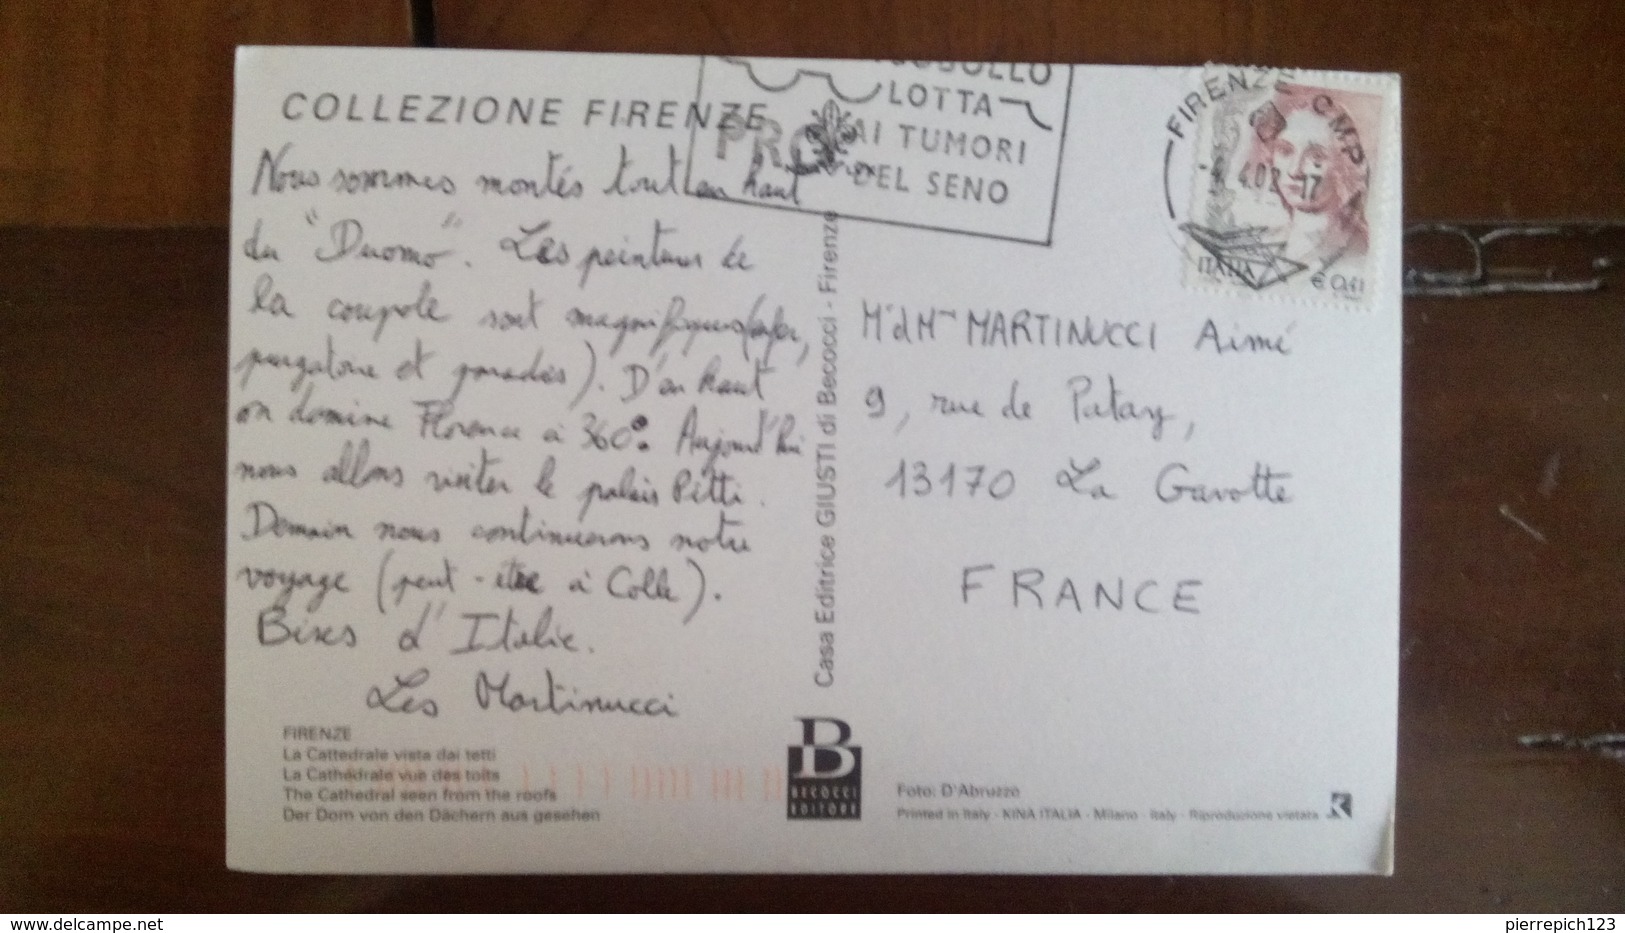 COLLEZIONE FIRENZE
Nous sommes montés tout en haut
du "Duomo". Les peintures de
la coupole sont magnifiques (enfer,
purgatoire et paradis). D'en haut
on domine Florence à 360°. Aujourd'hui
nous allons visiter le palais Pitti.
Demain nous continuerons notre
voyage (peut-être à Colle).
Bises d'Italie.
Les Martinucci
FIRENZE
La Cattedrale vista dai tetti
La Cathédrale vue des toits
The Cathedral seen from the roofs
Der Dom von den Dächern aus gesehen
Casa Editrice GIUSTI di Becocci - Firenze
B
BECOCCI
EDITORE
LOTTA
AI TUMORI
DEL SENO
PRO
FIRENZE CMP
4.02-17
ITALIA
€ 0,41
Mr et Mme MARTINUCCI Aimé
9, rue de Patay,
13170 La Gavotte
FRANCE
Foto: D'Abruzzo
Printed in Italy - KINA ITALIA - Milano - Italy - Riproduzione vietata
K
pierrepich123